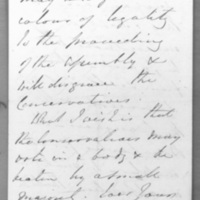 colour of legality
to the proceeding
of the Assembly &
will disgrace the
Conservatives.
What I wish is that
the Conservatives may
vote in a body & be
beaten by a small